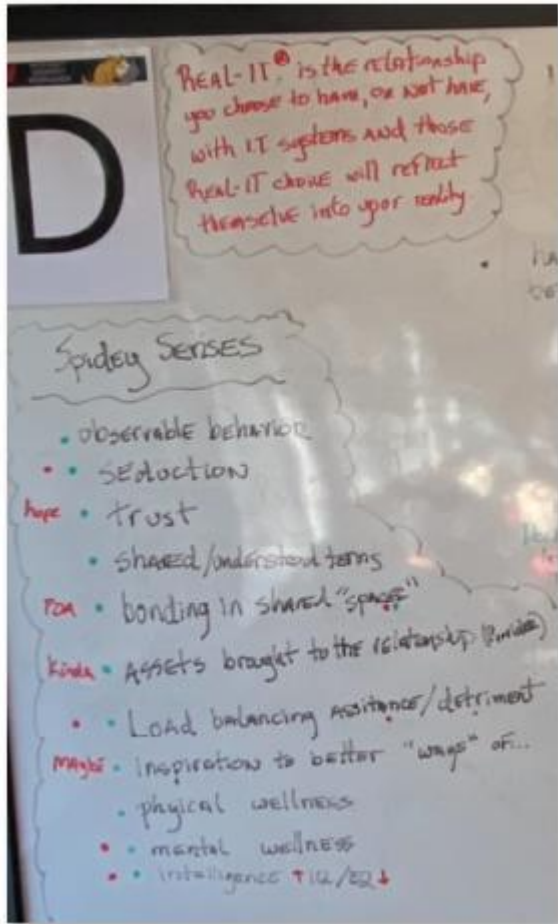 D
REAL-IT® is the relationship
you choose to have, or not have,
with IT systems and those
REAL-IT choice will reflect
themselve into your reality
Spidey SENSES
• observable behavior
• • seduction
hope • trust
• shared/understood terms
PDA • bonding in shared "spaces"
kinda • Assets brought to the relationship
• • Load balancing assitance/detriment
maybe • inspiration to better "ways" of...
• phyical wellness
• • mental wellness
• • intelligence ↑IQ/EQ↓